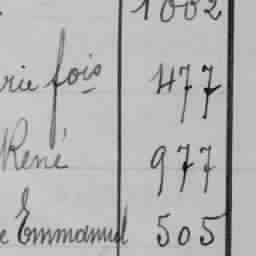 1002
rie fois 477
René 977
e Emmanuel 505